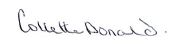 Collette Donald.